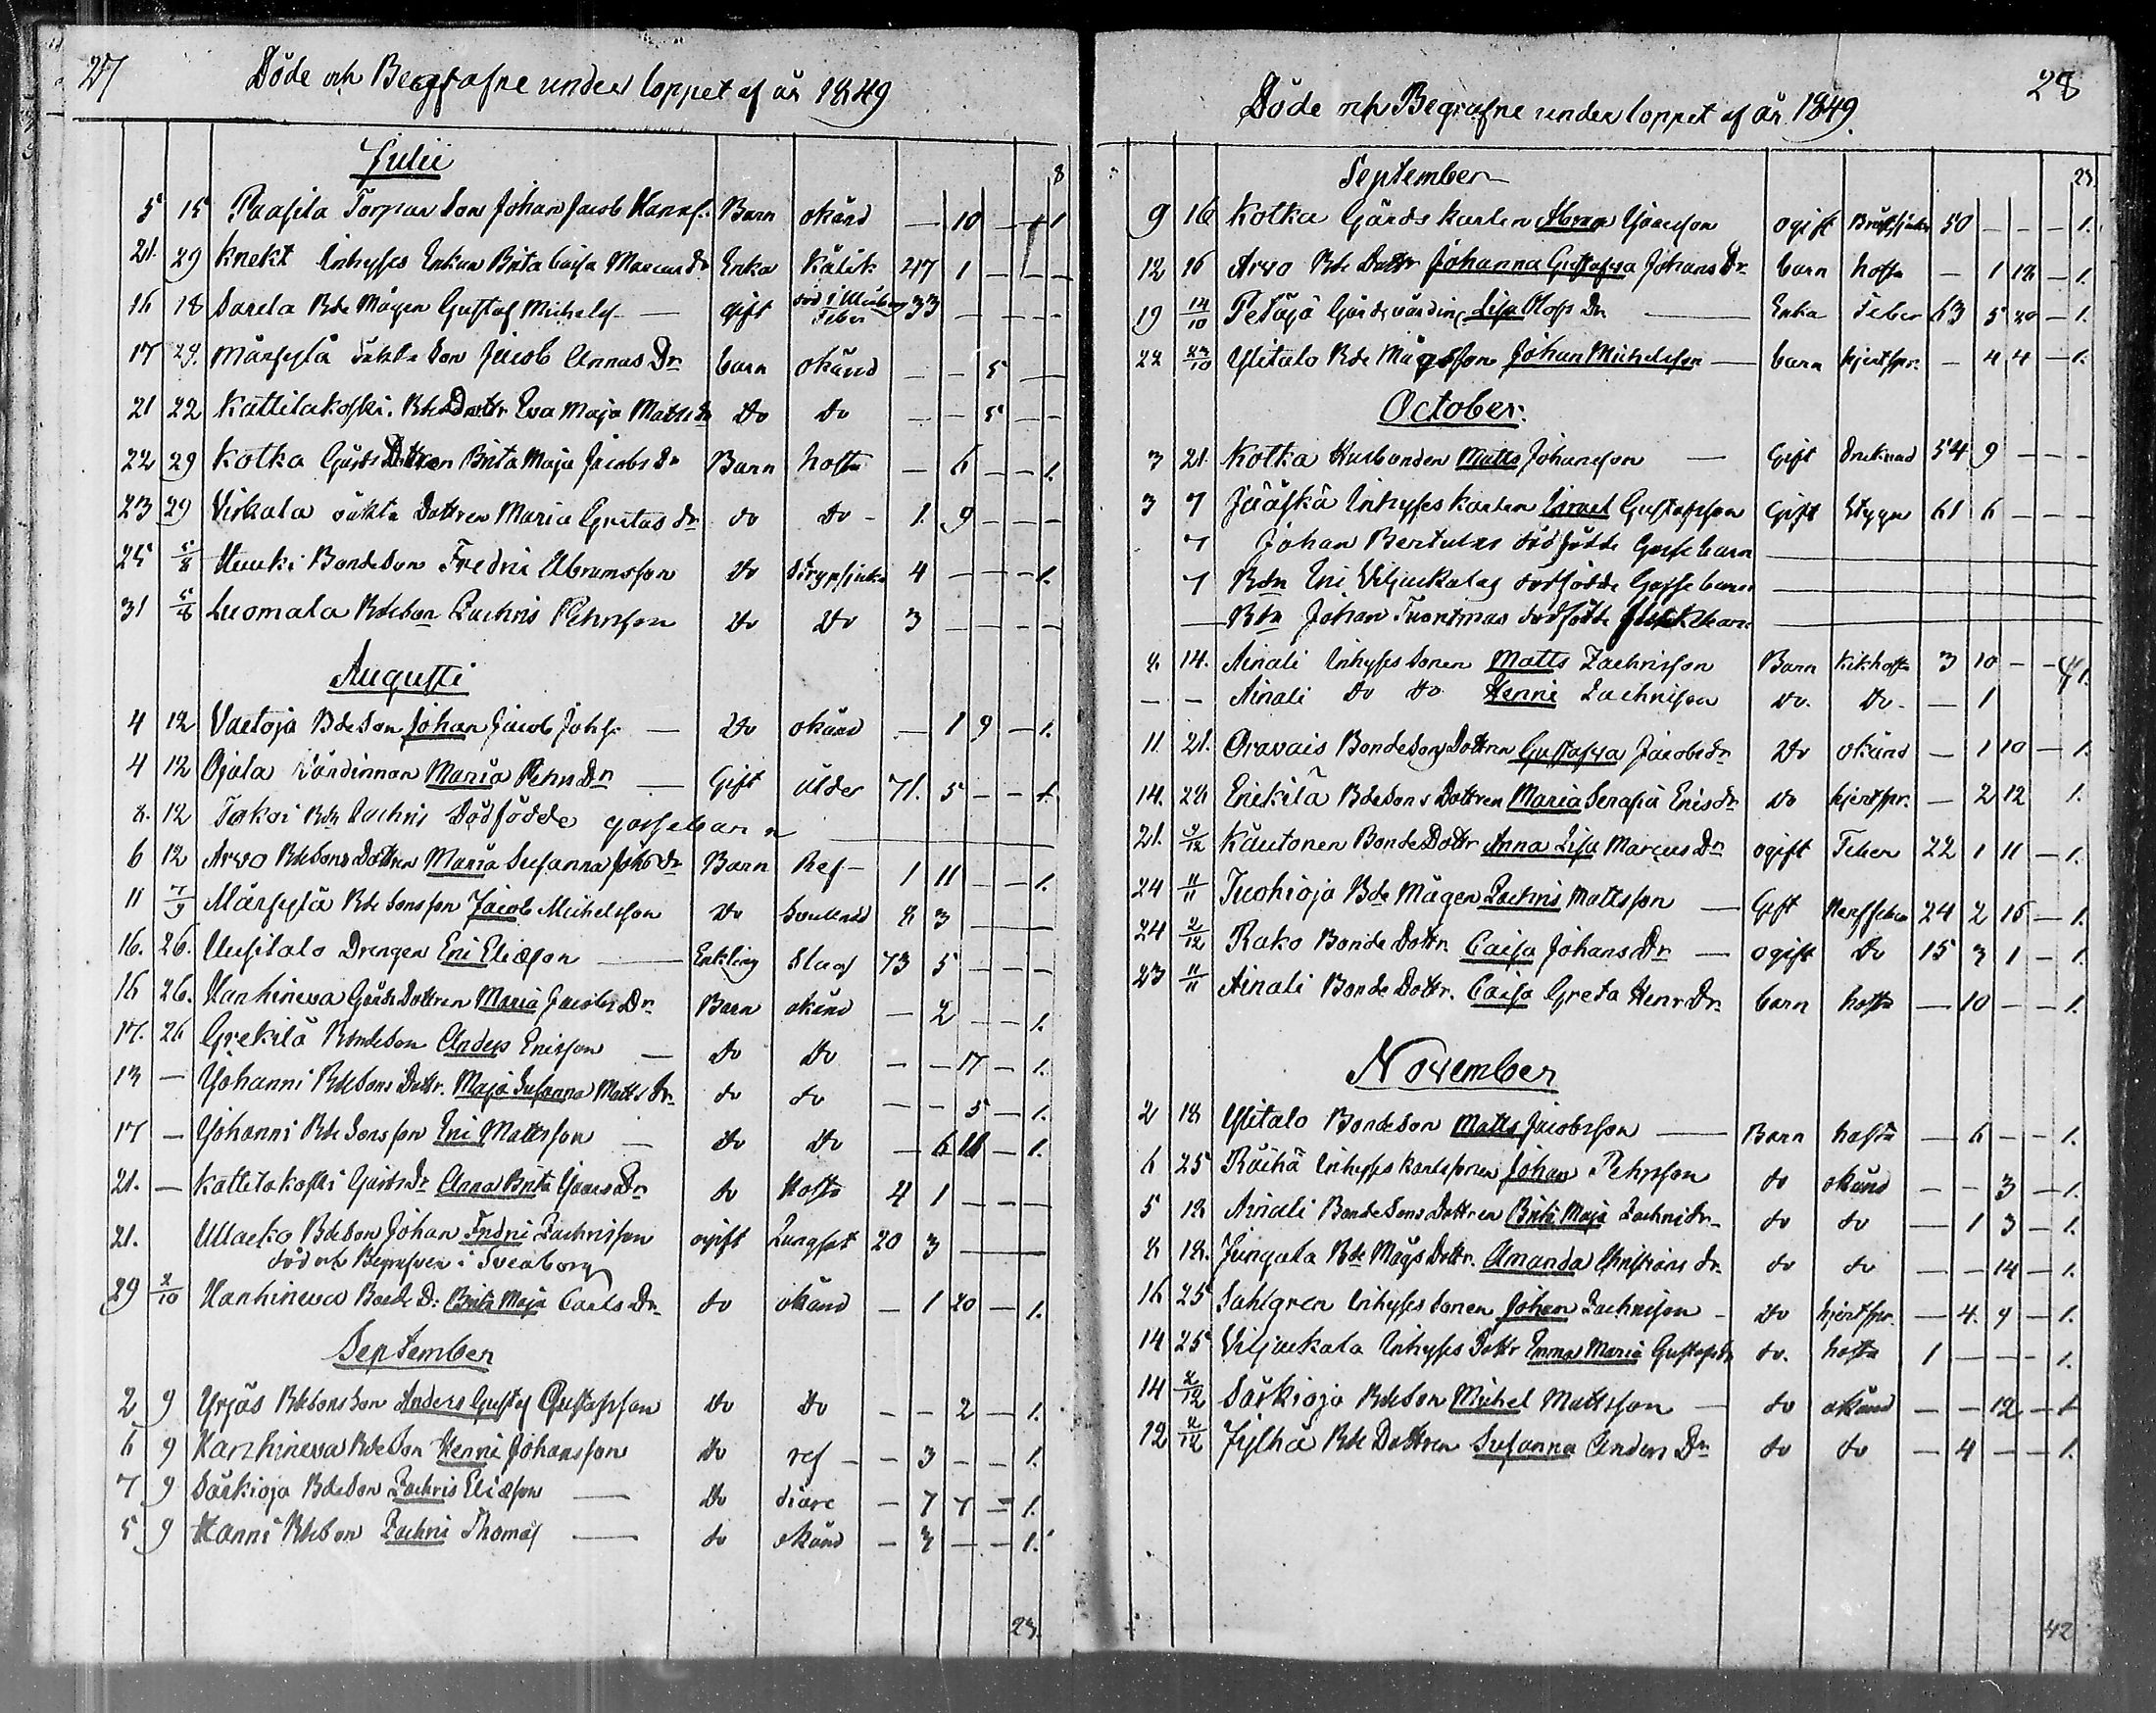 27
Döde och Begrafne under loppet af år 1849
Julii
8
5 15 Paasila Torpare Son Johan Jacob Hansf. Barn okänd — 10 — 1
21. 29 Knekt Inhyses Enkan Brita Caisa Marcus Dr Enka Kålik 47 1 — —
16 18 Sarela Bde Mågen Gustaf Michelsf — gift död i Uleåborg Feber 33 — — —
17 29. Märsylä oäkta Son Jacob Annas Dr barn okänd — — 5 —
21 22 Kattilakoski Bde Dottr Eva Maja Matts dr Do Do — — 5 — —
22 29 Kotka Gårds Dottren Brita Maja Jacobs dr Barn hosta — 6 — — 1.
23 29 Virkala oäkta Dottren Maria Gretas dr do Do — 1. 9 — — —
25 5/8 Huuki Bonde Son Fredric Abramsson Do Strypsjuka 4 — — — 1.
31 5/8 Luomala Bde Son Zachris Pehrsson Do Do 3 — — — —
Augusti
4 12 Vaetoja Bde Son Johan Jacob Johsf. — Do okänd — 1 9 — 1.
4 12 Ojala Värdinnan Maria Pehrs Dn — Gift ålder 71. 5 — — 1.
8. 12 Tokoi Bdn Zachris Dödfödde gossebarn
6 12 Arvo Bde Sons Dottren Maria Susanna Johs dr Barn Ref — 1 11 — — 1.
11 7/9 Märsylä Bde Sons son Jacob Michelsson Do 8 3 — — —
16. 26. Uusitalo Drengen Eric Eliasson — Enkling Slag 73 5 — — —
16 26. Kanhineva Gårds Dottren Maria Jacobs Dr Barn okänd — 2 — — 1.
17. 26 Grekilä Bonde Son Anders Ericsson — Do Do — — 17 — 1.
13 — Yohanni Bde Sons Dottr. Maja Susanna Matts dr. do do — — 5 — 1.
17 — Yohanni Bde Sons son Eric Mattsson — Do Do — 6 11 — 1.
21. — Kattilakoski Gårds Dr Anna Brita Göans Dr do Hosta 4 1 — — —
21. Ullacko Bde Son Johan Fredric Zachrisson ogift Lungsot 20 3 — —
död och Begrafven i Sveaborg
29 2/10 Kanhineva Bonde D: Brita Maja Carls Dr do okänd — 1 20 — 1.
September
2 9 Yrjäs Bde Sons Son Anders Gustaf Gustafsson Do Do — — 2 — 1.
6 9 Kanhineva Bde Son Henric Johansson Do ref — — 3 — — 1.
7 9 Särkioja Bde Son Zachris Eliasson — Do diare — 7 7 — 1.
5 9 Hanni Bde Son Zachris Thomasf — do okänd — 3 — — 1.
23.
28
Döde och Begrafne under loppet af år 1849.
September
23.
9 16 Kotka Gårds karlen Abram Göransson ogift Bröstsjuka 50 — — — 1.
12 16 Arvo Bde Dottr Johanna Gustafva Johans Dr. barn hosta — 1 18 — 1.
19 14/10 Petäjä Gårdsvärdin Lisa Olofs Dr — Enka Feber 63 5 20 — 1.
22 27/10 Ylitalo Bde Mågs son Johan Michelsson — barn hjertspr. — 4 4 — 1.
October.
3 21. Kotka Husbonden Matts Johansson — Gift Drunknad 54 9 — — —
3 7 Jääskä Inhyses karlen Israel Gustafsson Gift Stygn 61 6 — — —
7 Johan Bertulas dödfödde Gossebarn
7 Bdn Eric Viljuckalas dödfödde Gossebarn
— Bdn Johan Tuorilas dödfödde
8. 14. Ainali Inhyses Sonen Matts Zachrisson Barn kikhosta 3 10 — — 1.
— — Ainali do do Henric Zachrisson Do. Do. — 1
11. 21. Oravais Bondesons Dottren Gustafva Jacobs dr Do okänd — 1 10 — 1.
14. 28 Erickilä Bde Sons Dottren Maria Serafia Erics dr Do hjertspr. — 2 12 1.
21. 9/12 Kautonen Bonde Dottr Anna Lisa Marcus Dr ogift Feber 22 1 11 — 1.
24 11/11 Juohioja Bde Mågen Zachris Mattsson — Gift Nervfeber 24 2 16 — 1.
24 2/12 Rako Bonde Dottr. Caisa Johans Dr — ogift Do 15 3 1 — 1.
23 11/11 Ainali Bonde Dottr. Caisa Greta Henr Dr. barn hosta — 10 — — 1.
November
2 18 Ylitalo Bonde Son Matts Jacobsson — Barn hosta — 6 — — 1.
6 25 Räihä Inhyses karls sonen Johan Pehrsson do okänd — — 3 — 1.
5 18 Ainali Bonde Sons Dottren Brita Maja Zachris dr — do do — 1 3 — 1.
8 18. Jungala Bde Mågs Dottr. Amanda Christians dr. do do — — 14 — 1.
16 25 Sahlgren Inhyses Sonen Johan Zachrisson — Do hjertspr. — 4. 9 — 1.
14 25 Viljuckala Inhyses Dottr Emma Maria Gustafs dr do. hosta 1 — — — 1.
14 2/12 Särkioja Bde Son Michel Mattsson — do okänd — — 12 — 1
12 2/12 Jylhä Bde Dottren Susanna Anders Dr do do — 4 — — 1.
42